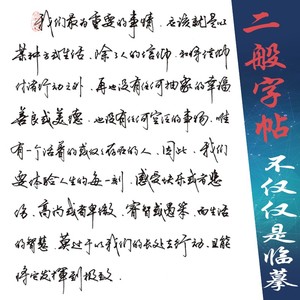 我们最为重要的事情，应该就是以
某种方式生活，除了人的信仰，和将信仰
付诸行动之外，再也没有任何抽象的幸福
善良或美德，也没有任何空泛的事物，唯
有一个活着的或仅存在的人，因此，我们
要体验人生的每一刻，感受快乐或者悲
伤，高尚或者卑微，睿智或愚笨，而生活
的智慧，莫过于以我们的长处去行动，且能
将它发挥到极致。
二般字帖
不仅仅是临摹